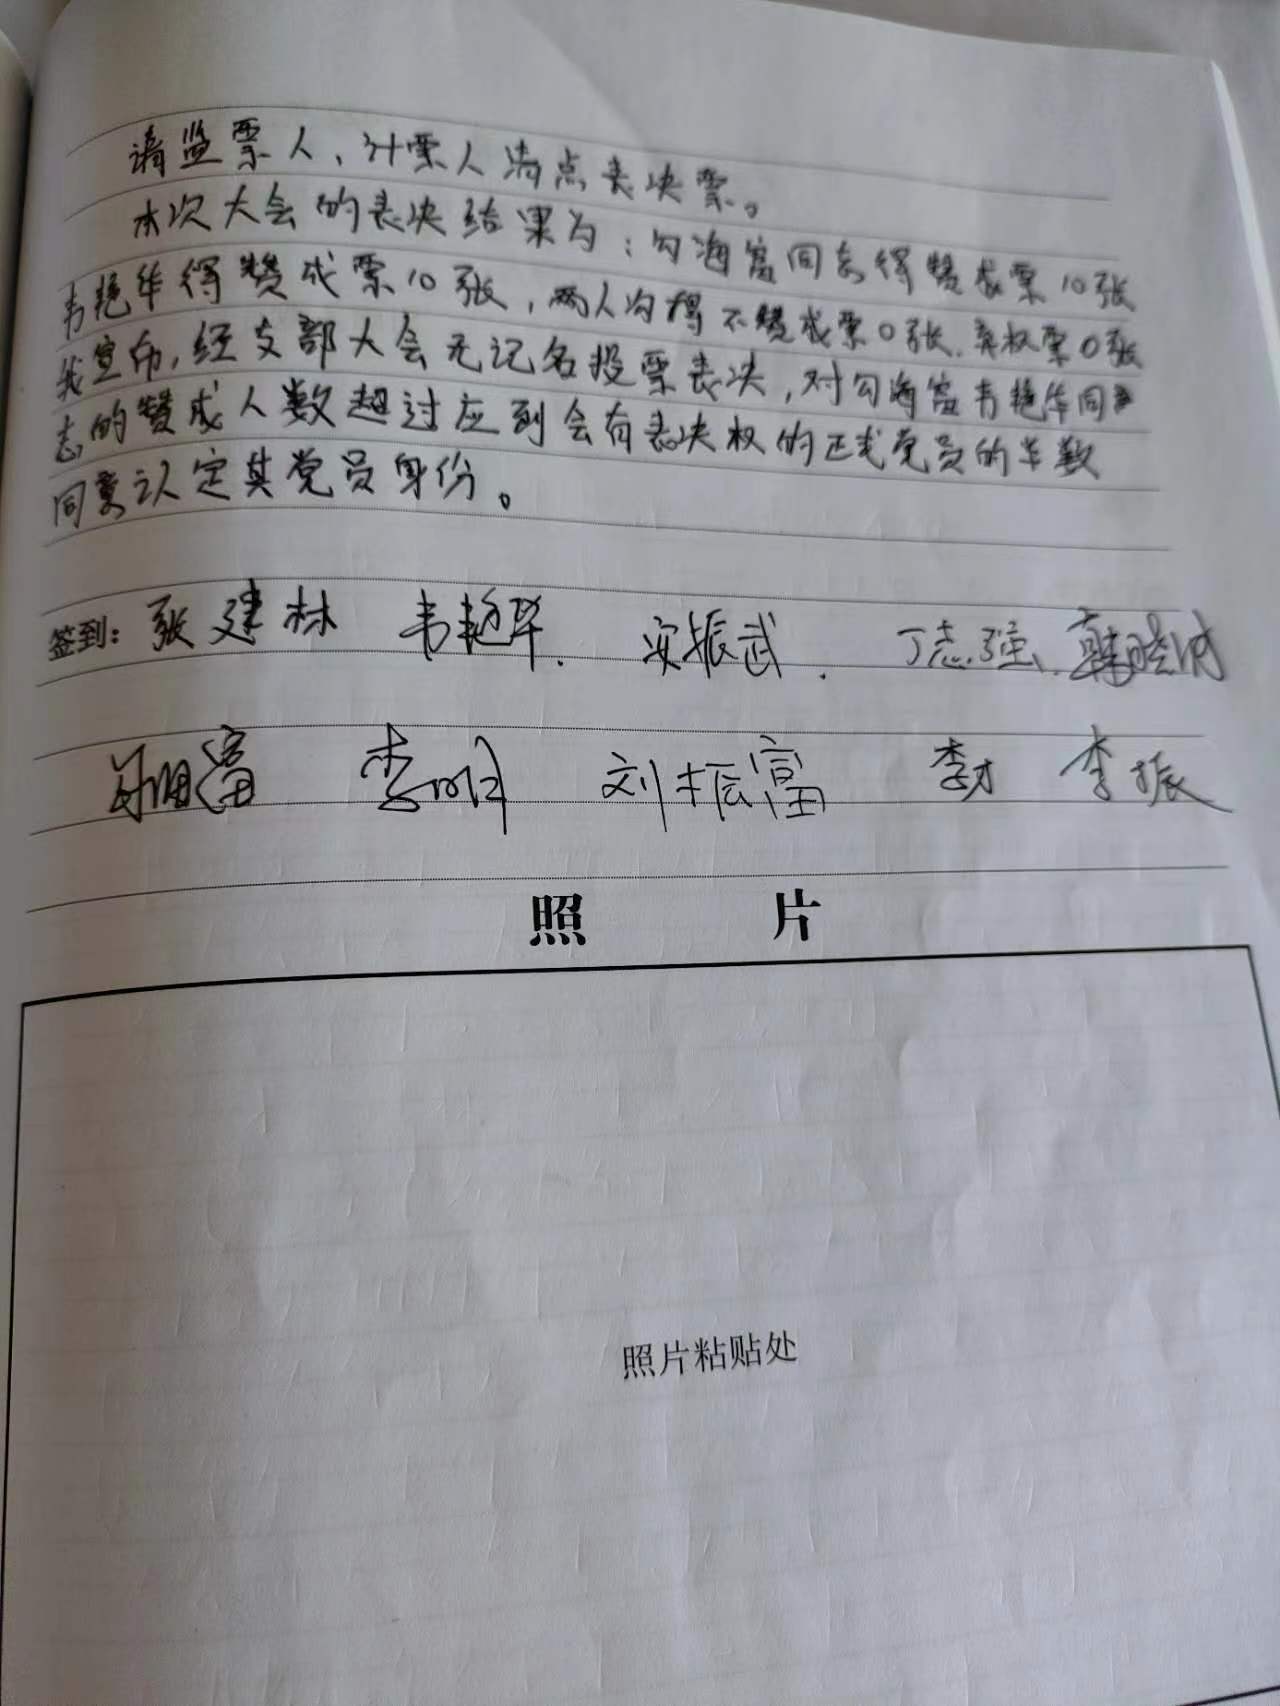 请监票人、计票人清点表决票。
本次大会的表决结果为：勾海富同志得赞成票10张
韦艳华得赞成票10张，两人均得不赞成票0张.弃权票0张
我宣布,经支部大会无记名投票表决,对勾海富韦艳华同
志的赞成人数超过应到会有表决权的正式党员的半数
同意认定其党员身份。
签到：张建林 韦艳华. 安振武. 丁志强.
李明 刘振富 李才 李振
照 片
照片粘贴处